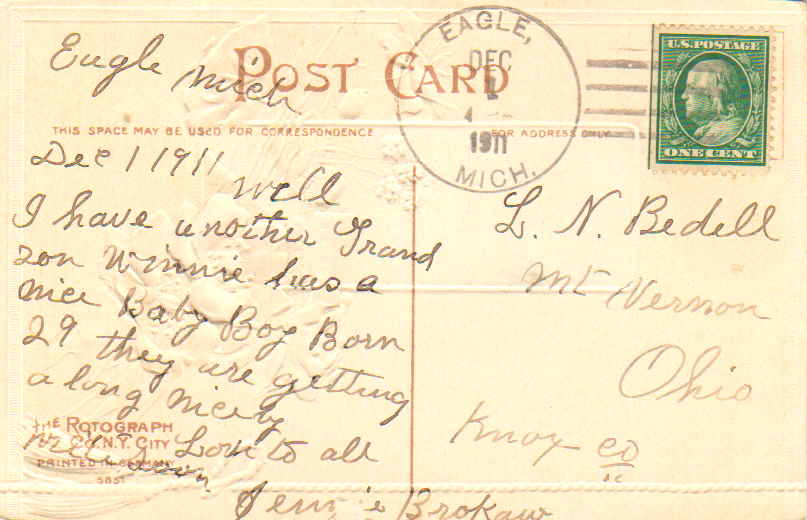 Eagle Mich
POST CARD
THIS SPACE MAY BE USED FOR CORRESPONDENCE
FOR ADDRESS ONLY
EAGLE,
DEC
1
1911
MICH.
U.S. POSTAGE
ONE CENT
Dec 1 1911
Well
I have another Grand
son Winnie has a
nice Baby Boy Born
29 they are getting
along nicely
write soon Love to all
Jennie Brokaw
THE ROTOGRAPH
CO. N.Y. CITY
PRINTED IN GERMANY
L. N. Bedell
Mt Vernon
Ohio
Knox co